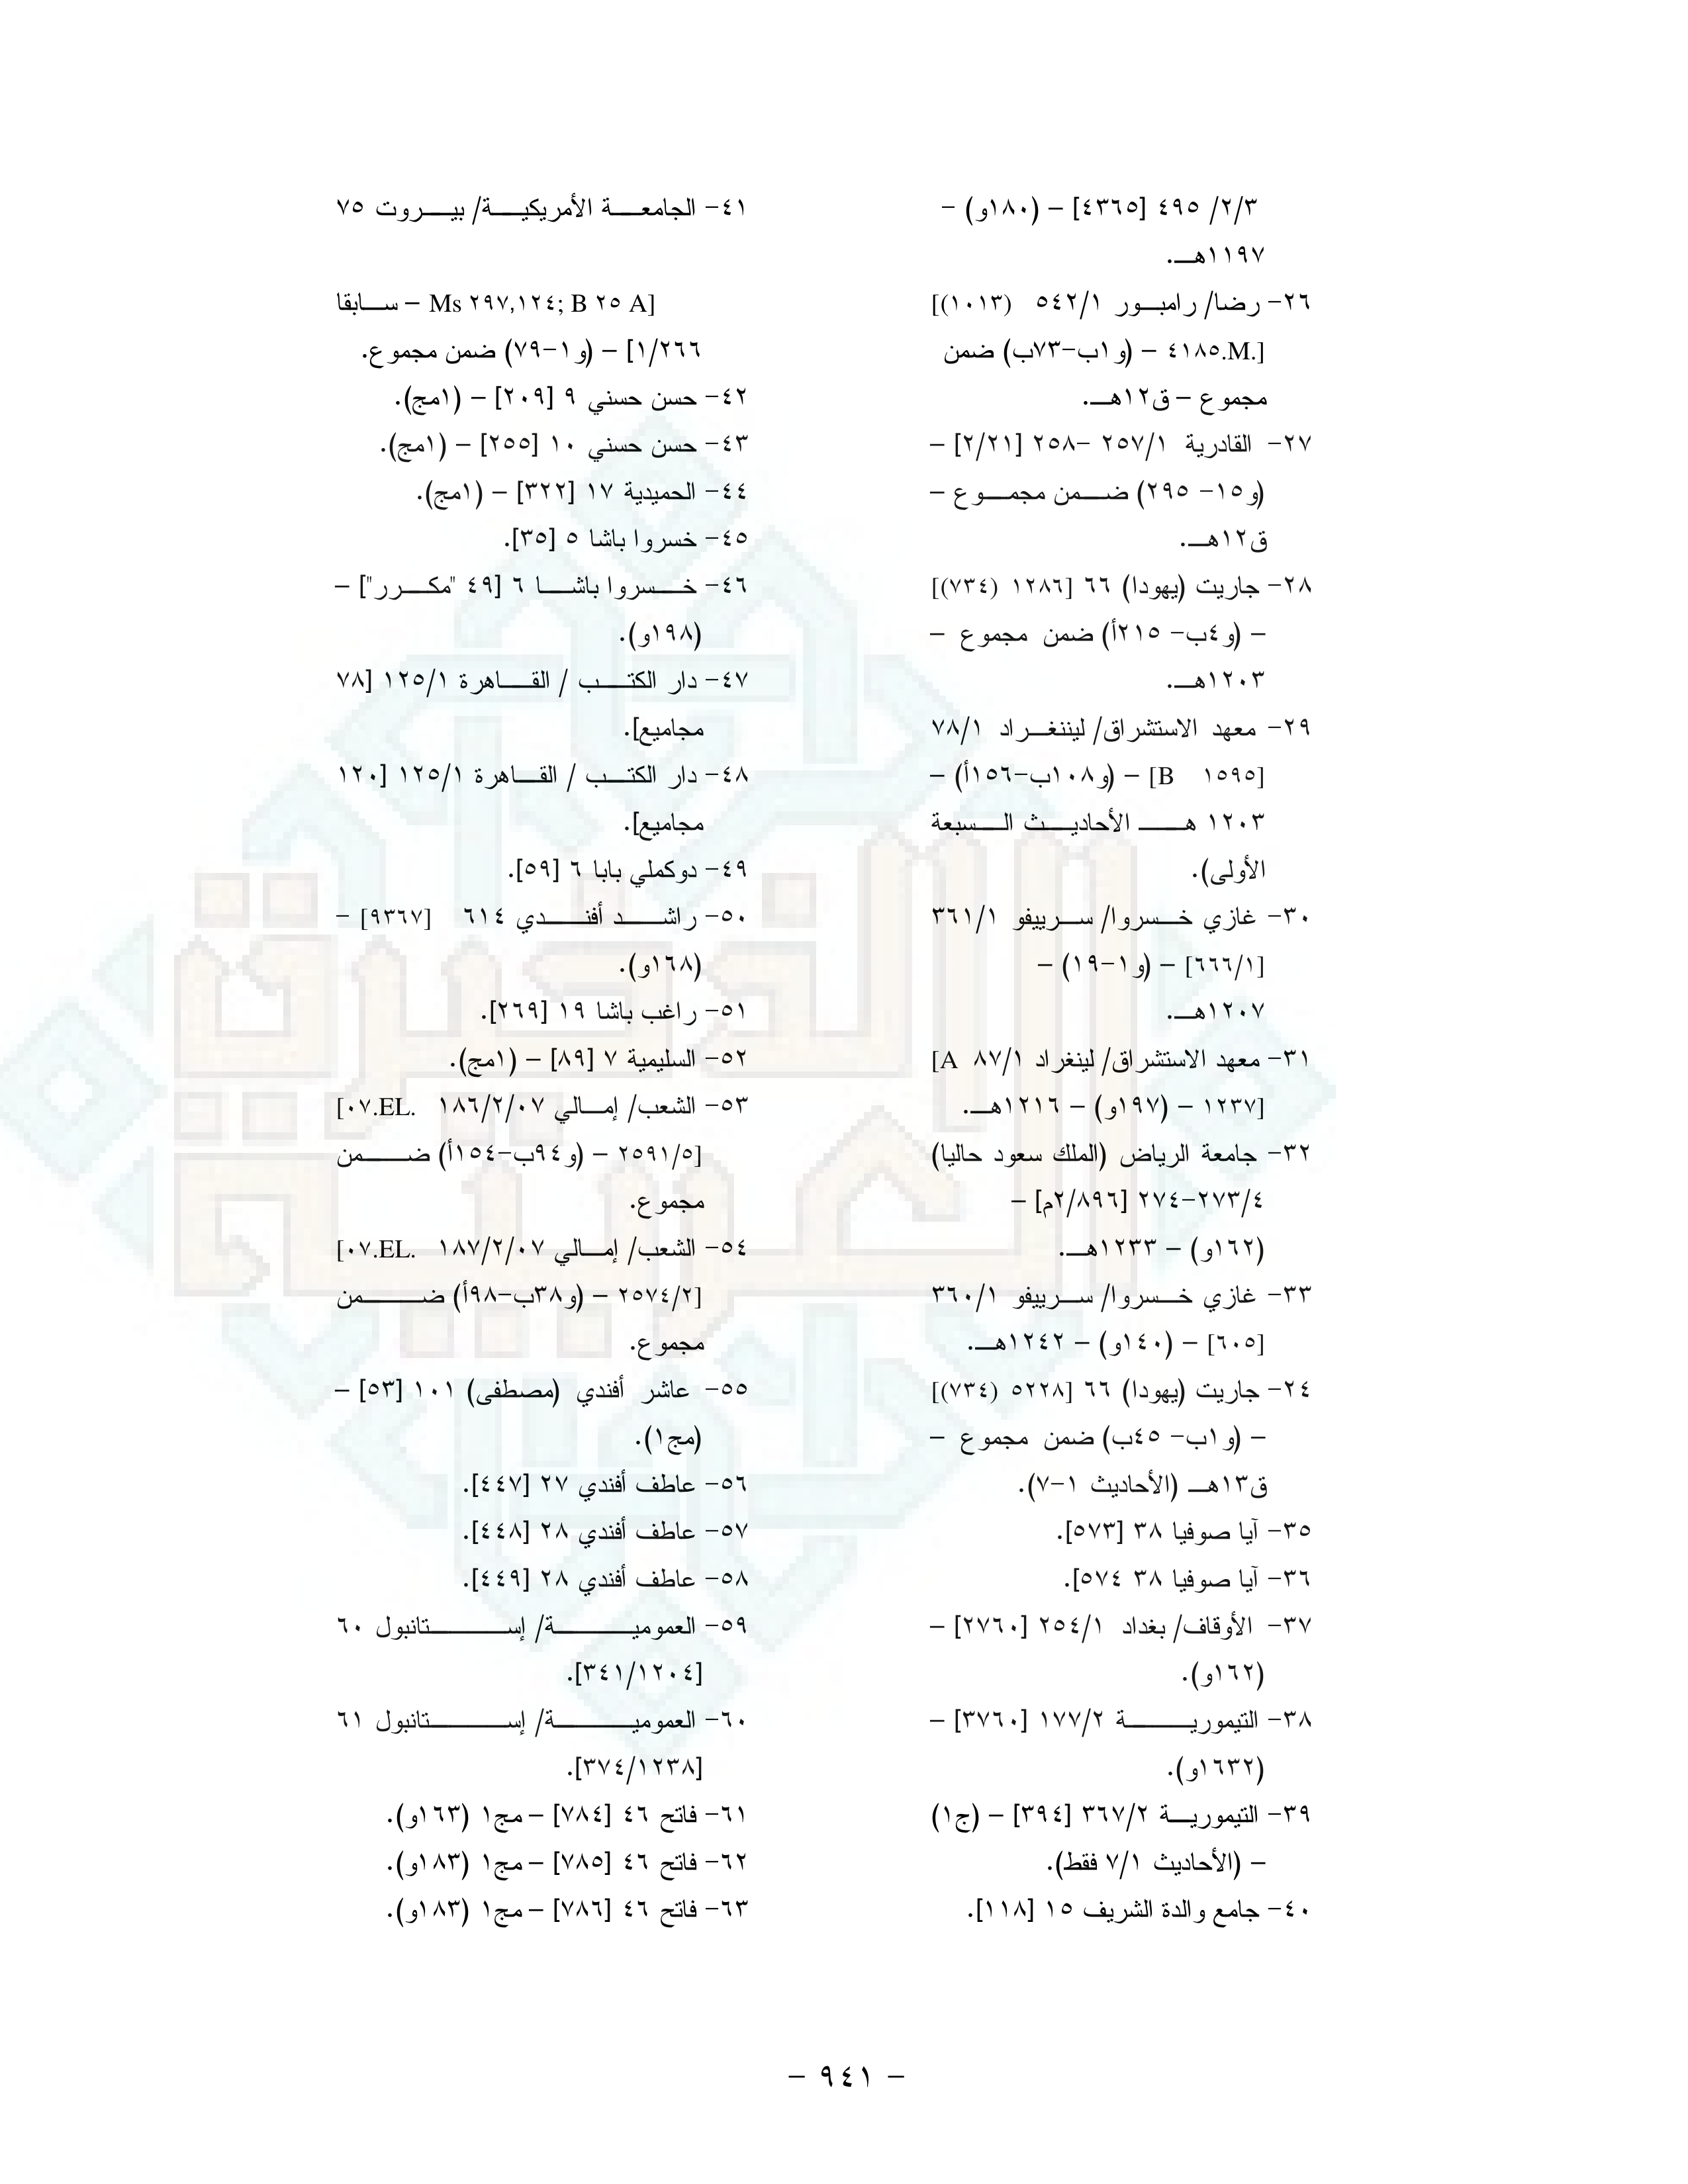 ٢/٣/ ٤٩٥ [٤٣٦٥] – (١٨٠و) –
١١٩٧هـ.
٢٦- رضا/ رامبور ٥٤٢/١ (١٠١٣)]
[.M.٤١٨٥ – (و١ب-٧٣ب) ضمن
مجموع – ق١٢هـ.
٢٧- القادرية ٢٥٧/١ -٢٥٨ [٢/٢١] –
(و١٥- ٢٩٥) ضمن مجموع –
ق١٢هـ.
٢٨- جاريت (يهودا) ٦٦ [١٢٨٦ (٧٣٤)]
– (و٤ب- ٢١٥أ) ضمن مجموع –
١٢٠٣هـ.
٢٩- معهد الاستشراق/ ليننغراد ٧٨/١
[B ١٥٩٥] – (و١٠٨ب-١٥٦أ) –
١٢٠٣ هـ الأحاديث السبعة
الأولى).
٣٠- غازي خسروا/ سرييفو ٣٦١/١
[٦٦٦/١] – (و١-١٩) –
١٢٠٧هـ.
٣١- معهد الاستشراق/ لينغراد ٨٧/١ A]
[١٢٣٧ – (١٩٧و) – ١٢١٦هـ.
٣٢- جامعة الرياض (الملك سعود حاليا)
٢٧٣/٤-٢٧٤ [٢/٨٩٦م] –
(١٦٢و) – ١٢٣٣هـ.
٣٣- غازي خسروا/ سرييفو ٣٦٠/١
[٦٠٥] – (١٤٠و) – ١٢٤٢هـ.
٢٤- جاريت (يهودا) ٦٦ [٥٢٢٨ (٧٣٤)]
– (و١ب- ٤٥ب) ضمن مجموع –
ق١٣هـ (الأحاديث ١-٧).
٣٥- آيا صوفيا ٣٨ [٥٧٣].
٣٦- آيا صوفيا ٣٨ ٥٧٤].
٣٧- الأوقاف/ بغداد ٢٥٤/١ [٢٧٦٠] –
(١٦٢و).
٣٨- التيمورية ١٧٧/٢ [٣٧٦٠] –
(١٦٣٢و).
٣٩- التيمورية ٣٦٧/٢ [٣٩٤] – (ج١)
– (الأحاديث ٧/١ فقط).
٤٠- جامع والدة الشريف ١٥ [١١٨].
٤١- الجامعة الأمريكية/ بيروت ٧٥
[Ms ٢٩٧,١٢٤; B ٢٥ A – سابقا
١/٢٦٦] – (و١-٧٩) ضمن مجموع.
٤٢- حسن حسني ٩ [٢٠٩] – (١مج).
٤٣- حسن حسني ١٠ [٢٥٥] – (١مج).
٤٤- الحميدية ١٧ [٣٢٢] – (١مج).
٤٥- خسروا باشا ٥ [٣٥].
٤٦- خسروا باشا ٦ [٤٩ "مكرر"] –
(١٩٨و).
٤٧- دار الكتب / القاهرة ١٢٥/١ [٧٨
مجاميع].
٤٨- دار الكتب / القاهرة ١٢٥/١ [١٢٠
مجاميع].
٤٩- دوكملي بابا ٦ [٥٩].
٥٠- راشد أفندي ٦١٤ [٩٣٦٧] –
(١٦٨و).
٥١- راغب باشا ١٩ [٢٦٩].
٥٢- السليمية ٧ [٨٩] – (١مج).
٥٣- الشعب/ إمالي ١٨٦/٢/٠٧ .٠٧.EL]
[٢٥٩١/٥ – (و٩٤ب-١٥٤أ) ضمن
مجموع.
٥٤- الشعب/ إمالي ١٨٧/٢/٠٧ .٠٧.EL]
[٢٥٧٤/٢ – (و٣٨ب-٩٨أ) ضمن
مجموع.
٥٥- عاشر أفندي (مصطفى) ١٠١ [٥٣] –
(مج١).
٥٦- عاطف أفندي ٢٧ [٤٤٧].
٥٧- عاطف أفندي ٢٨ [٤٤٨].
٥٨- عاطف أفندي ٢٨ [٤٤٩].
٥٩- العمومية/ إستانبول ٦٠
[٣٤١/١٢٠٤].
٦٠- العمومية/ إستانبول ٦١
[٣٧٤/١٢٣٨].
٦١- فاتح ٤٦ [٧٨٤] – مج١ (١٦٣و).
٦٢- فاتح ٤٦ [٧٨٥] – مج١ (١٨٣و).
٦٣- فاتح ٤٦ [٧٨٦] – مج١ (١٨٣و).
– ٩٤١ –